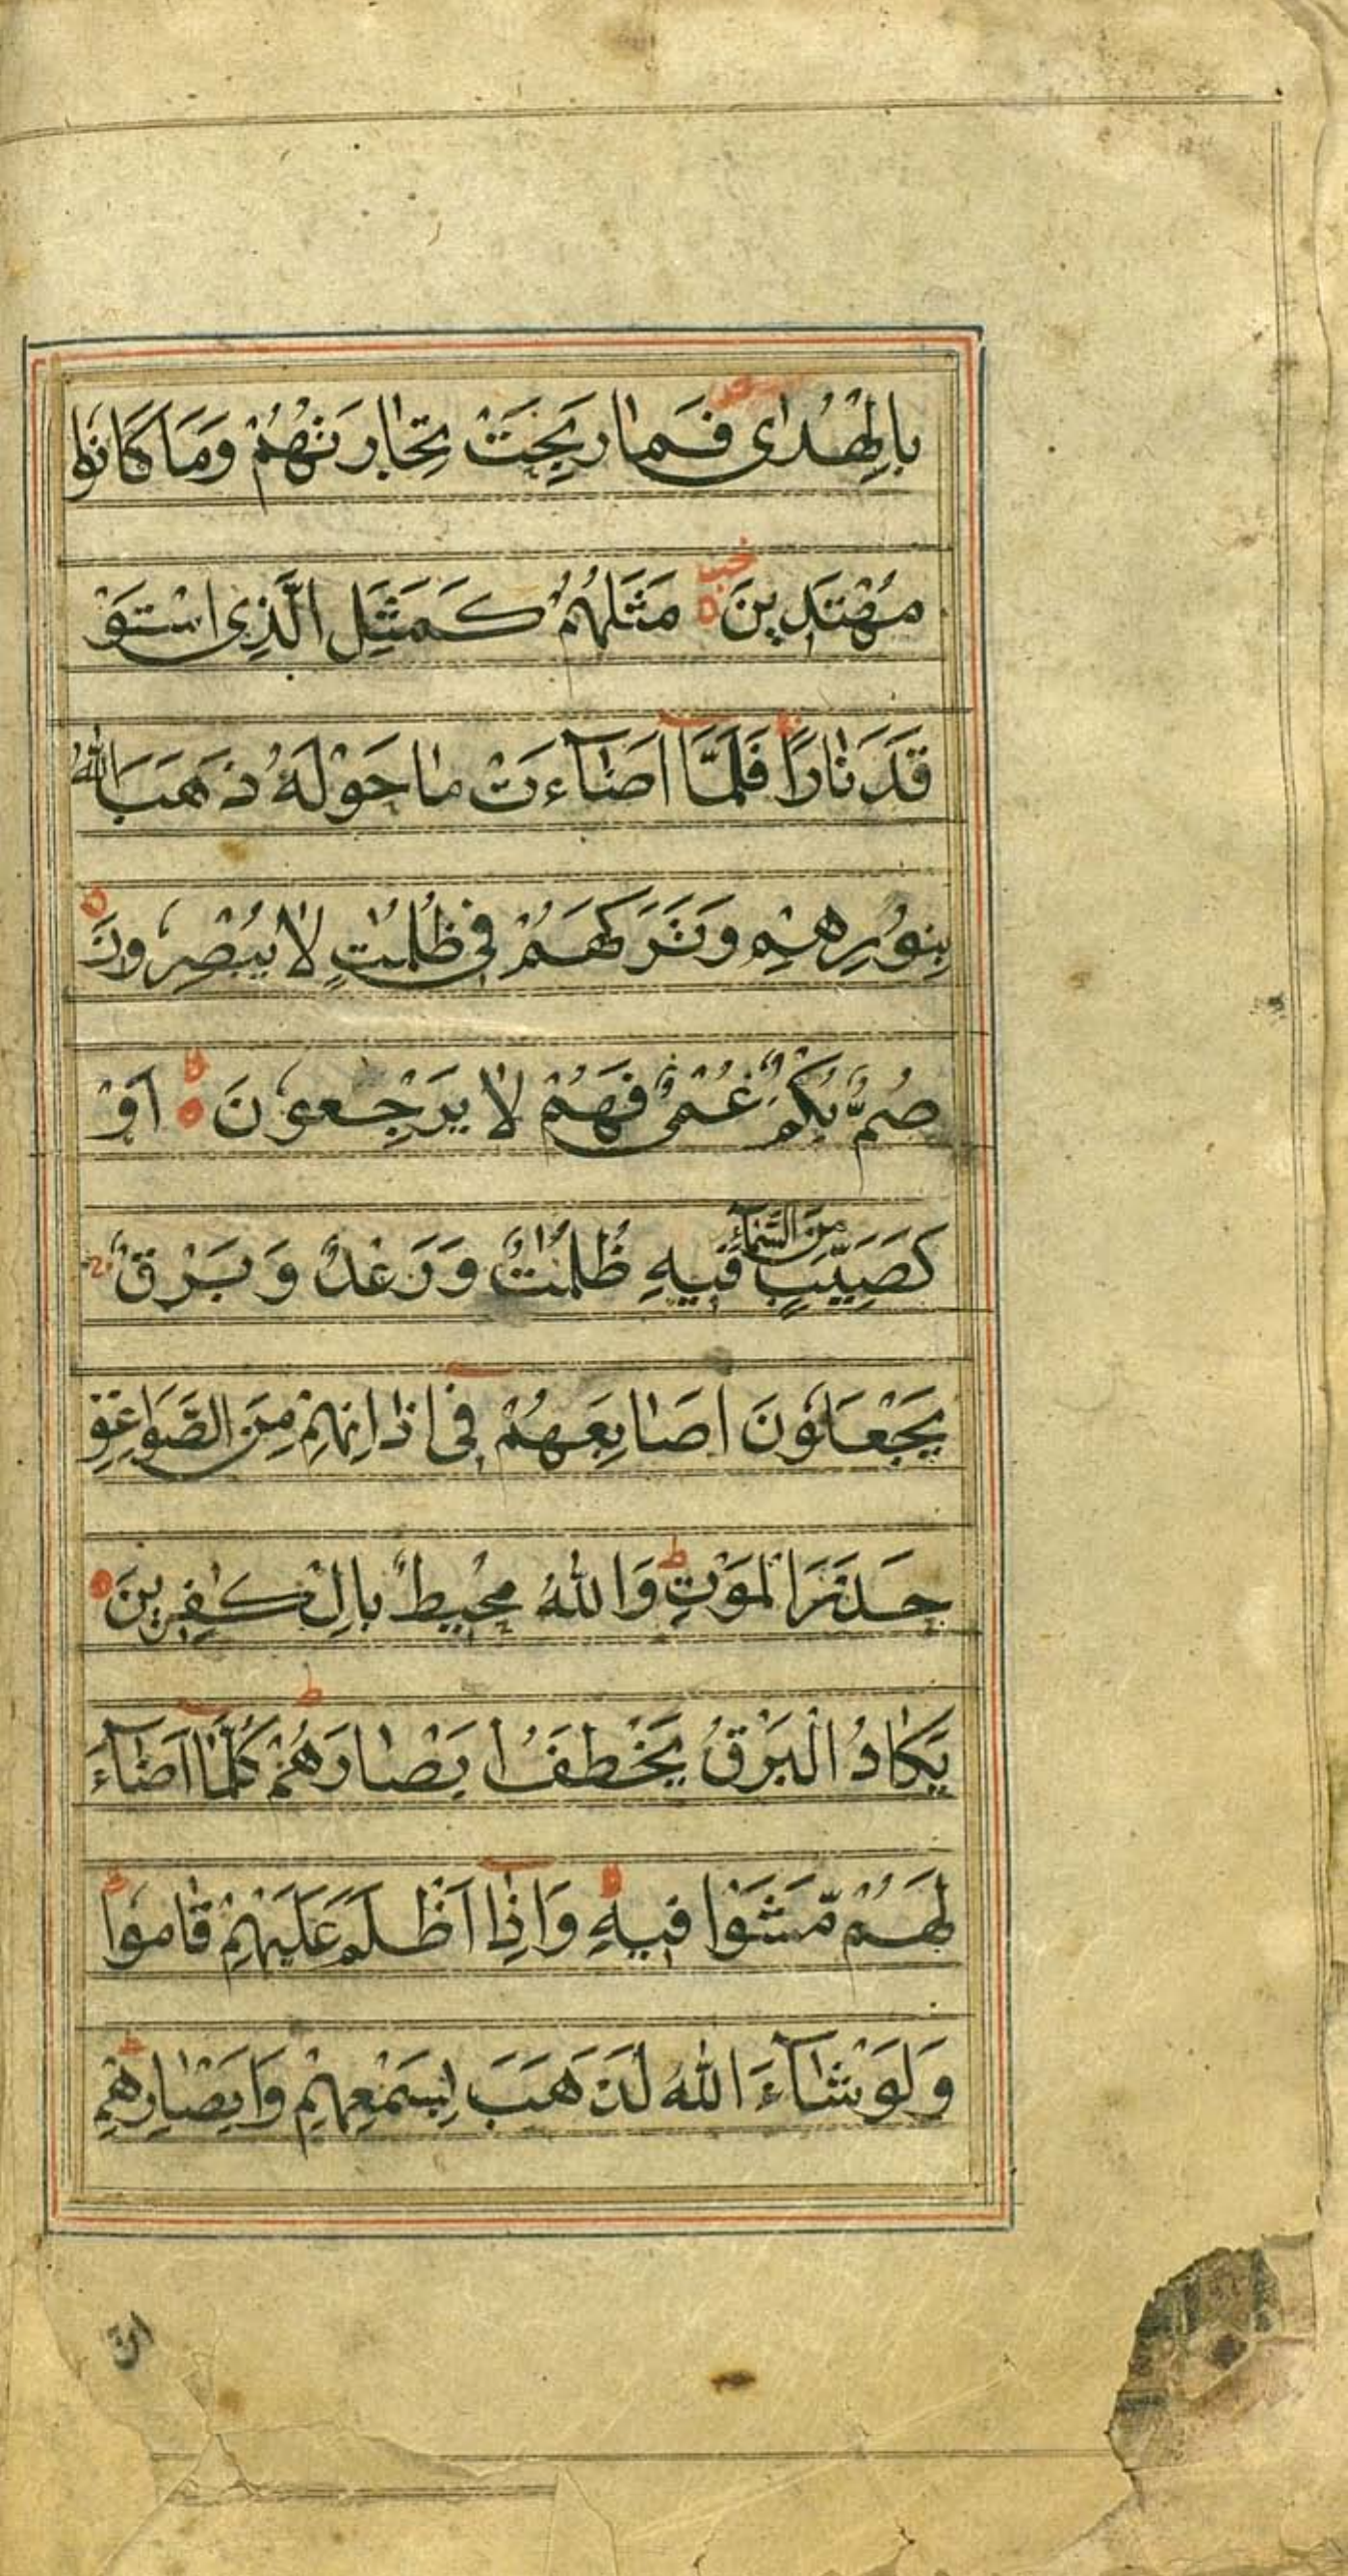 بِالْهُدٰى فَمَا رَبِحَتْ تِجَارَتُهُمْ وَمَا كَانُوا
مُهْتَدِينَ مَثَلُهُمْ كَمَثَلِ الَّذِى اسْتَوْ
قَدَ نَارًا فَلَمَّا اَضَآءَتْ مَا حَوْلَهُ ذَهَبَ اللهُ
بِنُورِهِمْ وَتَرَكَهُمْ فِى ظُلُمٰتٍ لَا يُبْصِرُونَ
صُمٌّ بُكْمٌ عُمْىٌ فَهُمْ لَا يَرْجِعُونَ اَوْ
كَصَيِّبٍ مِنَ السَّمَآءِ فِيهِ ظُلُمٰتٌ وَرَعْدٌ وَبَرْقٌ
يَجْعَلُونَ اَصَابِعَهُمْ فِى اٰذَانِهِمْ مِنَ الصَّوَاعِقِ
حَذَرَ الْمَوْتِ وَاللهُ مُحِيطٌ بِالْكٰفِرِينَ
يَكَادُ الْبَرْقُ يَخْطَفُ اَبْصَارَهُمْ كُلَّمَا اَضَآءَ
لَهُمْ مَّشَوْا فِيهِ وَاِذَا اَظْلَمَ عَلَيْهِمْ قَامُوا
وَلَوْ شَآءَ اللهُ لَذَهَبَ بِسَمْعِهِمْ وَاَبْصَارِهِمْ
انّ